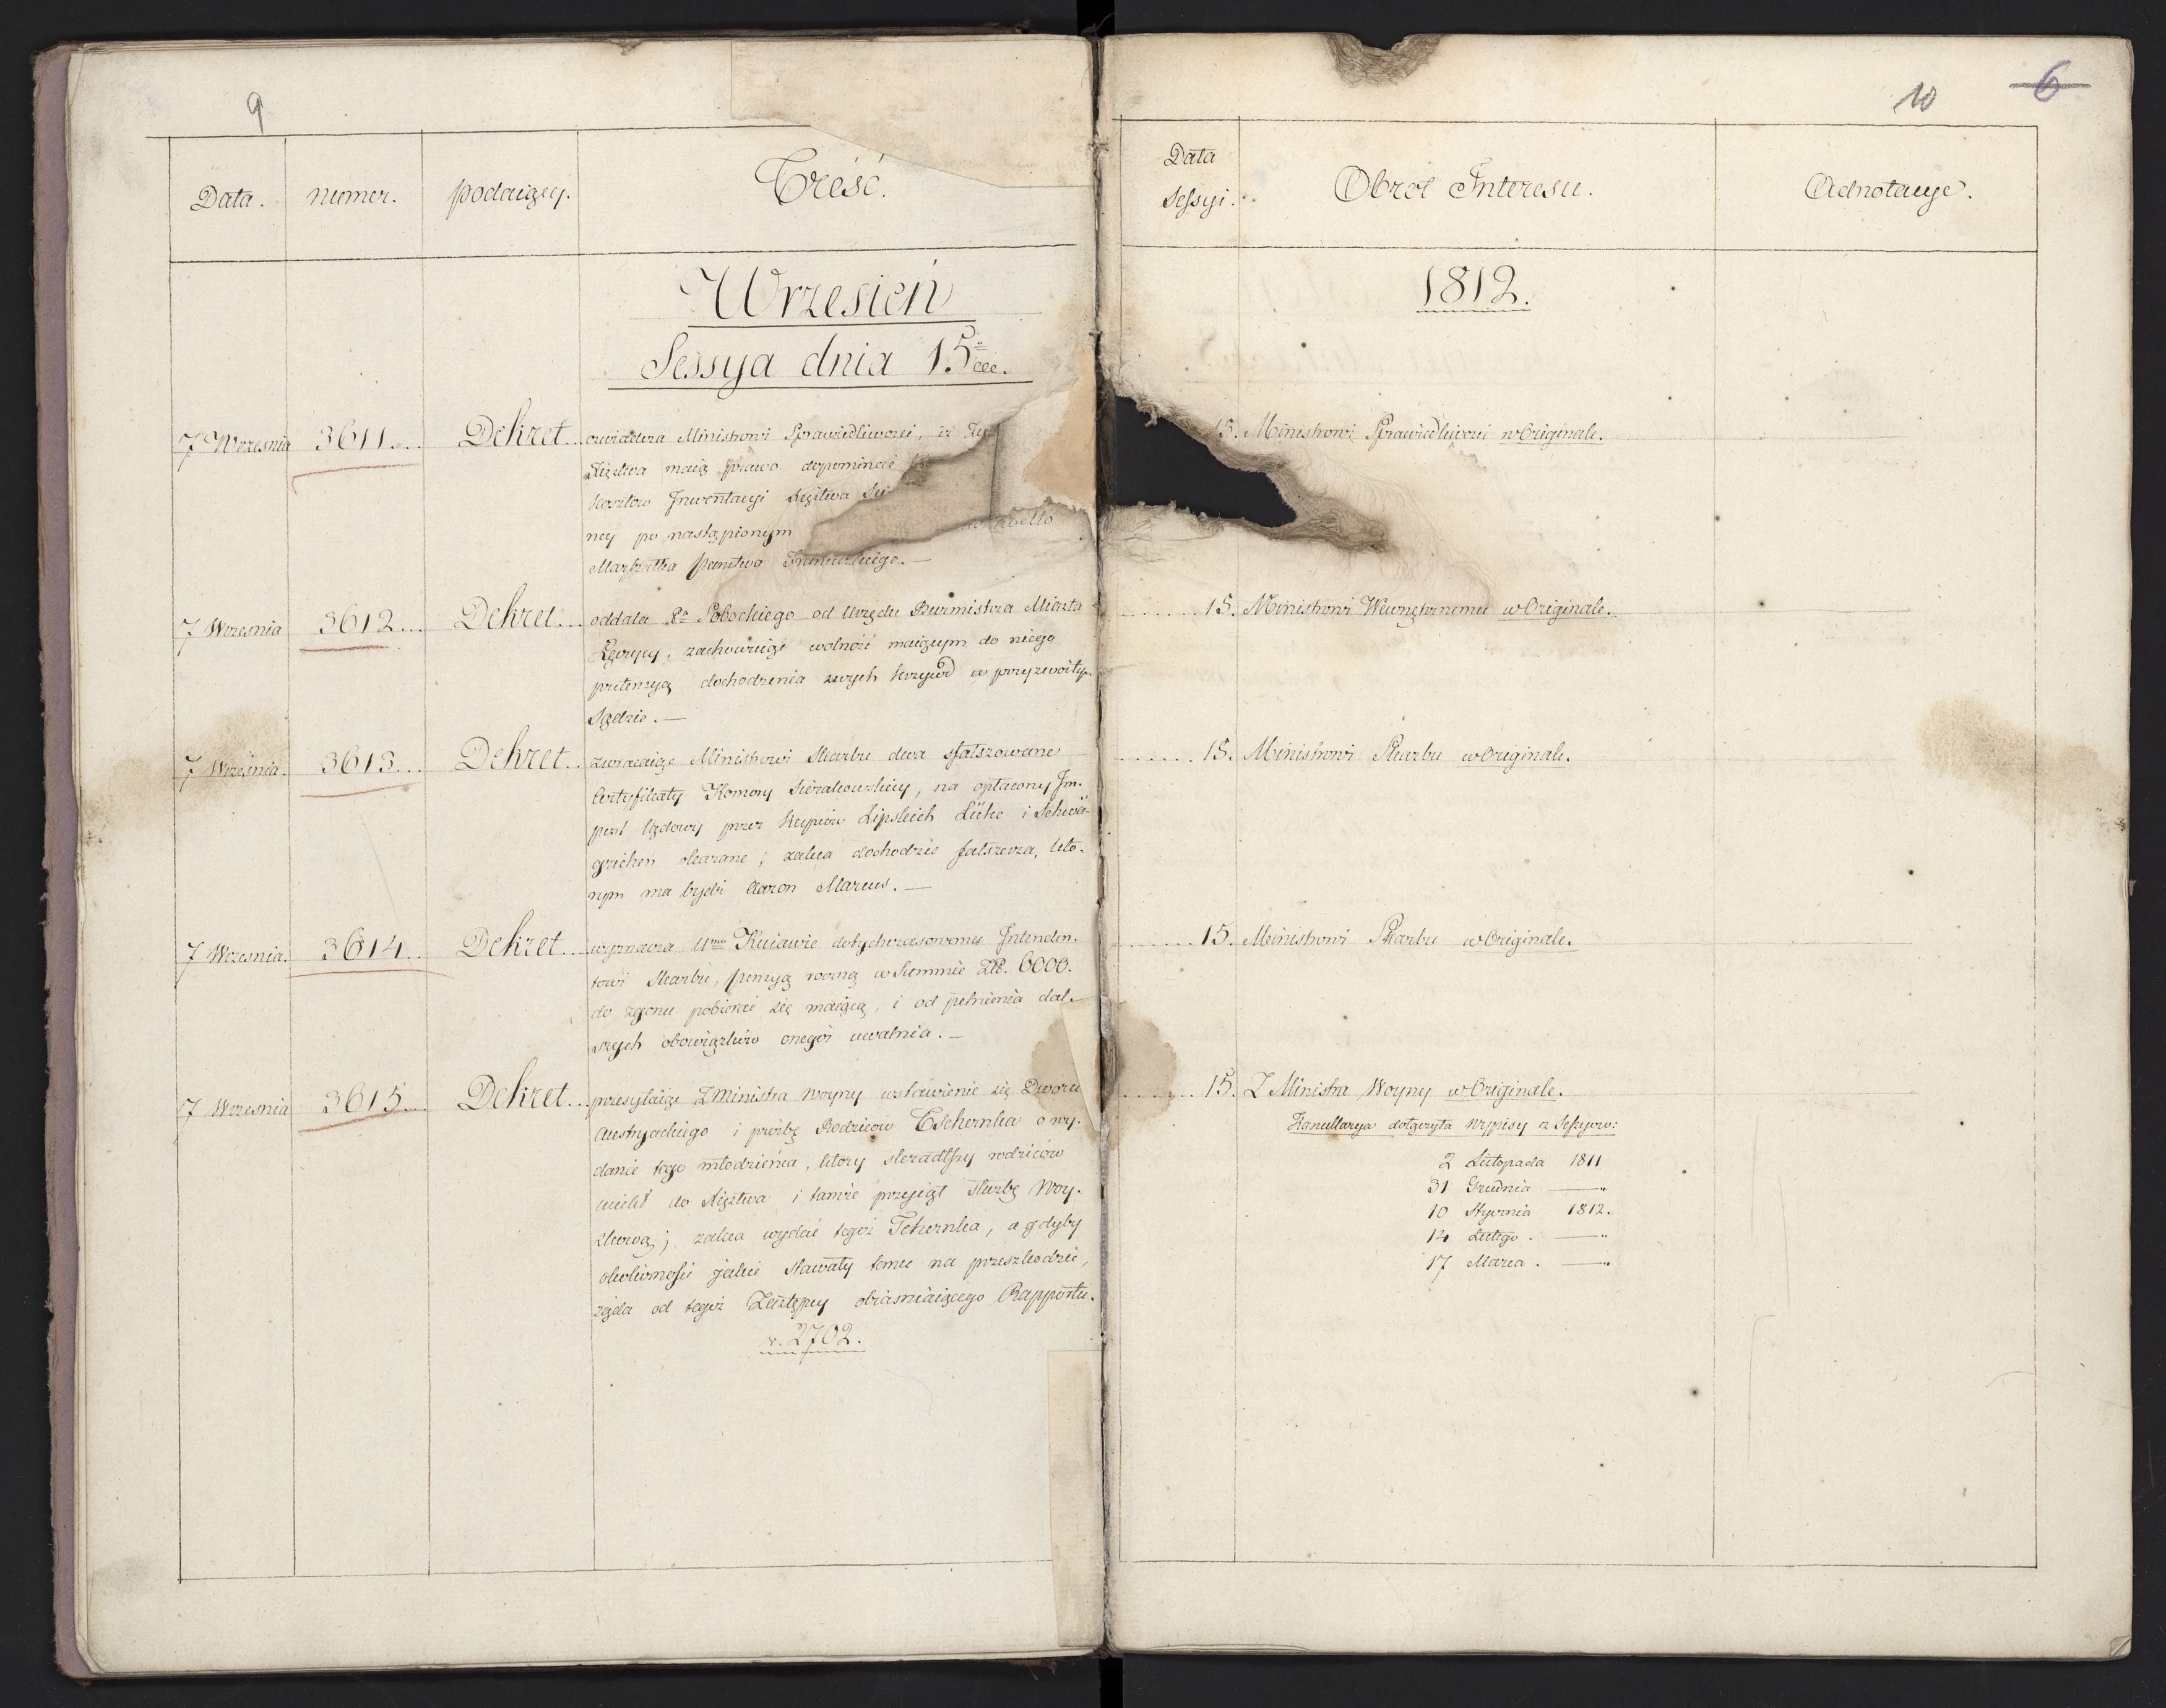 9
Data.
numer.
podaiący.
Treść.
Wrzesień
Sessya dnia 15
7 Wrzesnia 3611 Dekret oswiadcza Ministrowi Sprawiedliwości, iż
Xięztwa maią prawo dopominać
kosztow Inwentacyi Xięztwa
ney po nastąpionym
Marszałka Panstwa
7 Wrzesnia 3612 Dekret oddala Sobockiego od Urzędu Burmistrza Miasta
Łęczycy, zachowuiąc wolność maiącym do niego
pretensyą dochodzenia swych krzywd w przyzwoitym
Sądzie. —
7 Wrzesnia. 3613 Dekret zwracaiąc Ministrowi Skarbu dwa sfałszowane
Certyfikaty Komory Sierakowskiey, na opłacony Im-
post lądowy przez Kupiów Lipskich Lücke i Schwä-
grichen okazane; zaleca dochodzić fałszerza, któ-
rym ma bydź Aaron Marcus. —
7 Wrzesnia. 3614 Dekret wyznacza Kuiawie dotychczasowemu Intenden-
towi Skarbu, pensyą roczną w Summie Złt. 6000.
do zgonu pobierać się maiącą, i od pełnienia dal-
szych obowiązków onegoż uwalnia. —
7 Wrzesnia 3615 Dekret przesyłaiąc Z Ministra Woyny wstawienie się Dworu
Austryackiego i prozbę Rodziców Tschernka o wy-
danie tego młodzieńca, ktory skradłszy rodziców
uciekł do Xięztwa i tamże przyiął służbę Woy-
skową; zaleca wydać tegoż Tchernka, a gdyby
okoliczności jakie stawały temu na przeszkodzie,
żąda od tegoż Zastępcy obiasniaiącego Rapportu.
v. 2702.
10
6
Data
Sessyi.
Obrot Interesu.
Adnotacye.
1812.
15. Ministrowi Sprawiedliwości w Originale.
15. Ministrowi Wewnętrznemu w Originale.
15. Ministrowi Skarbu w Originale.
15. Ministrowi Skarbu w Originale.
15. Z Ministra Woyny w Originale.
Kancellarya dołączyła Wypisy z Sessyow:
2 Listopada 1811
31 Grudnia —"
10 Stycznia 1812.
14 Lutego. —"
17 Marca. —"